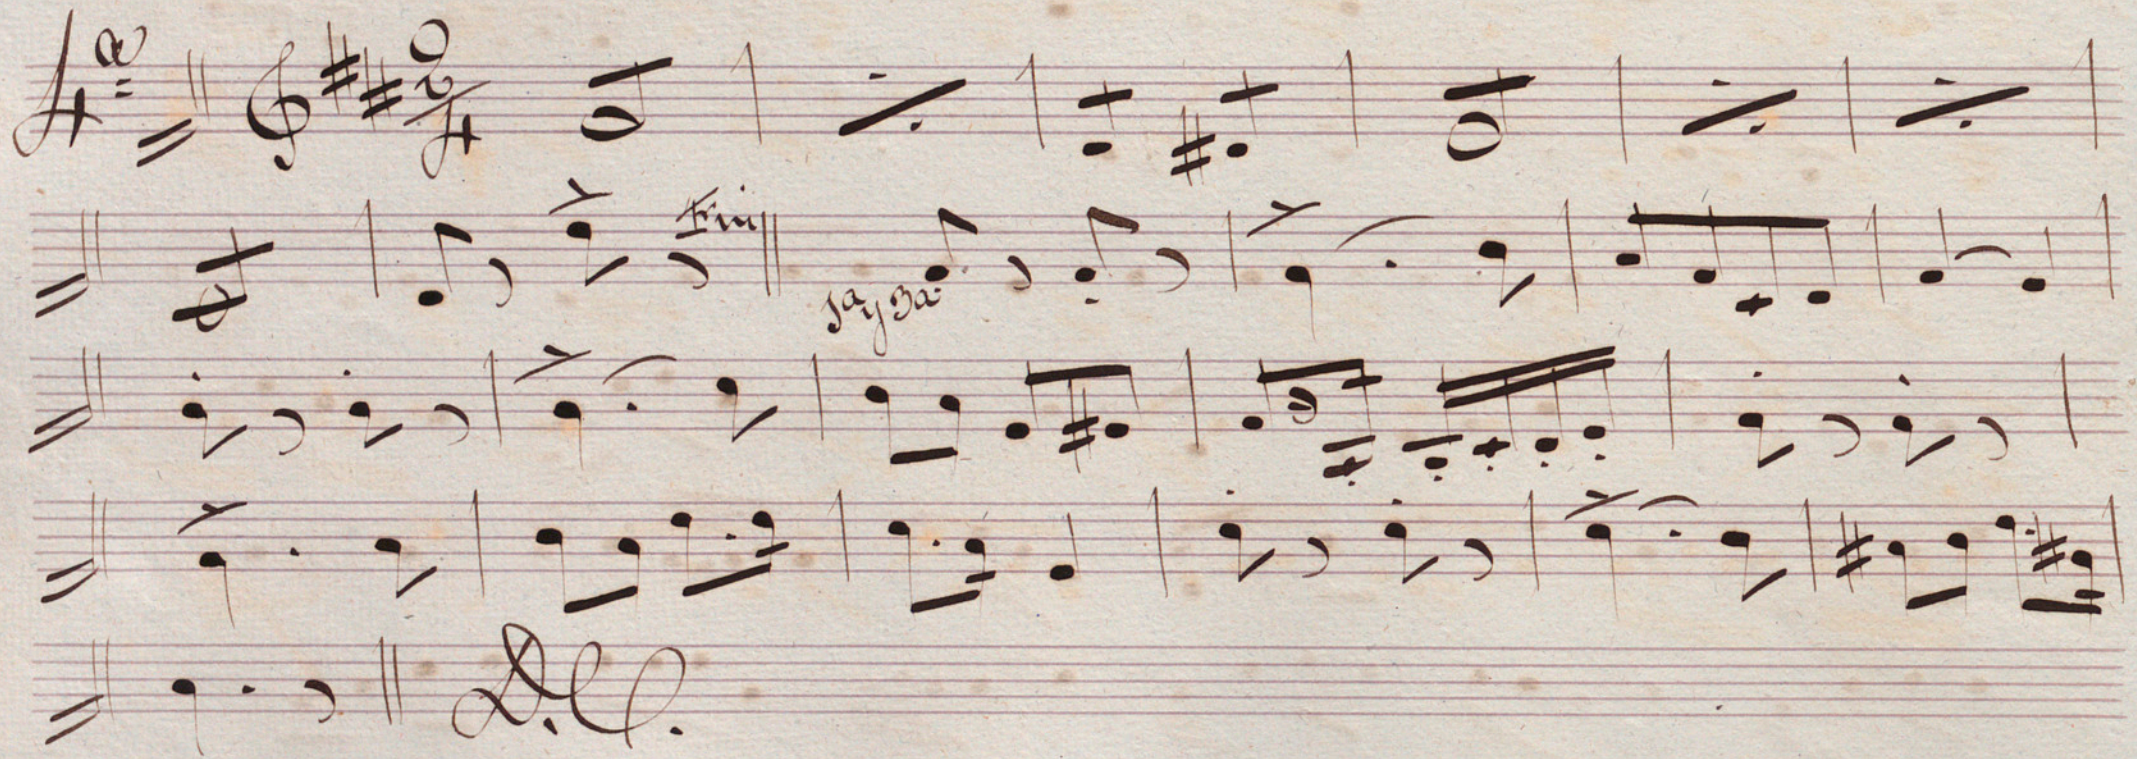 4ª
2/4
Fin
1a y 3a
D.C.